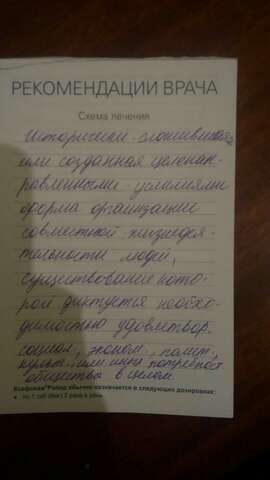 РЕКОМЕНДАЦИИ ВРАЧА
Схема лечения
Исторически сложившаяся
или созданная целенап-
равленными усилиями
форма организации
совместной жизнедея-
тельности людей,
существование кото-
рой диктуется необхо-
димостью удовлетвор.
социал., эконом., полит.,
культ., или иных потребнос
общества в целом.
Ксефокам® Рапид обычно назначается в следующих дозировках:
• по 1 таб (8мг) 2 раза в день